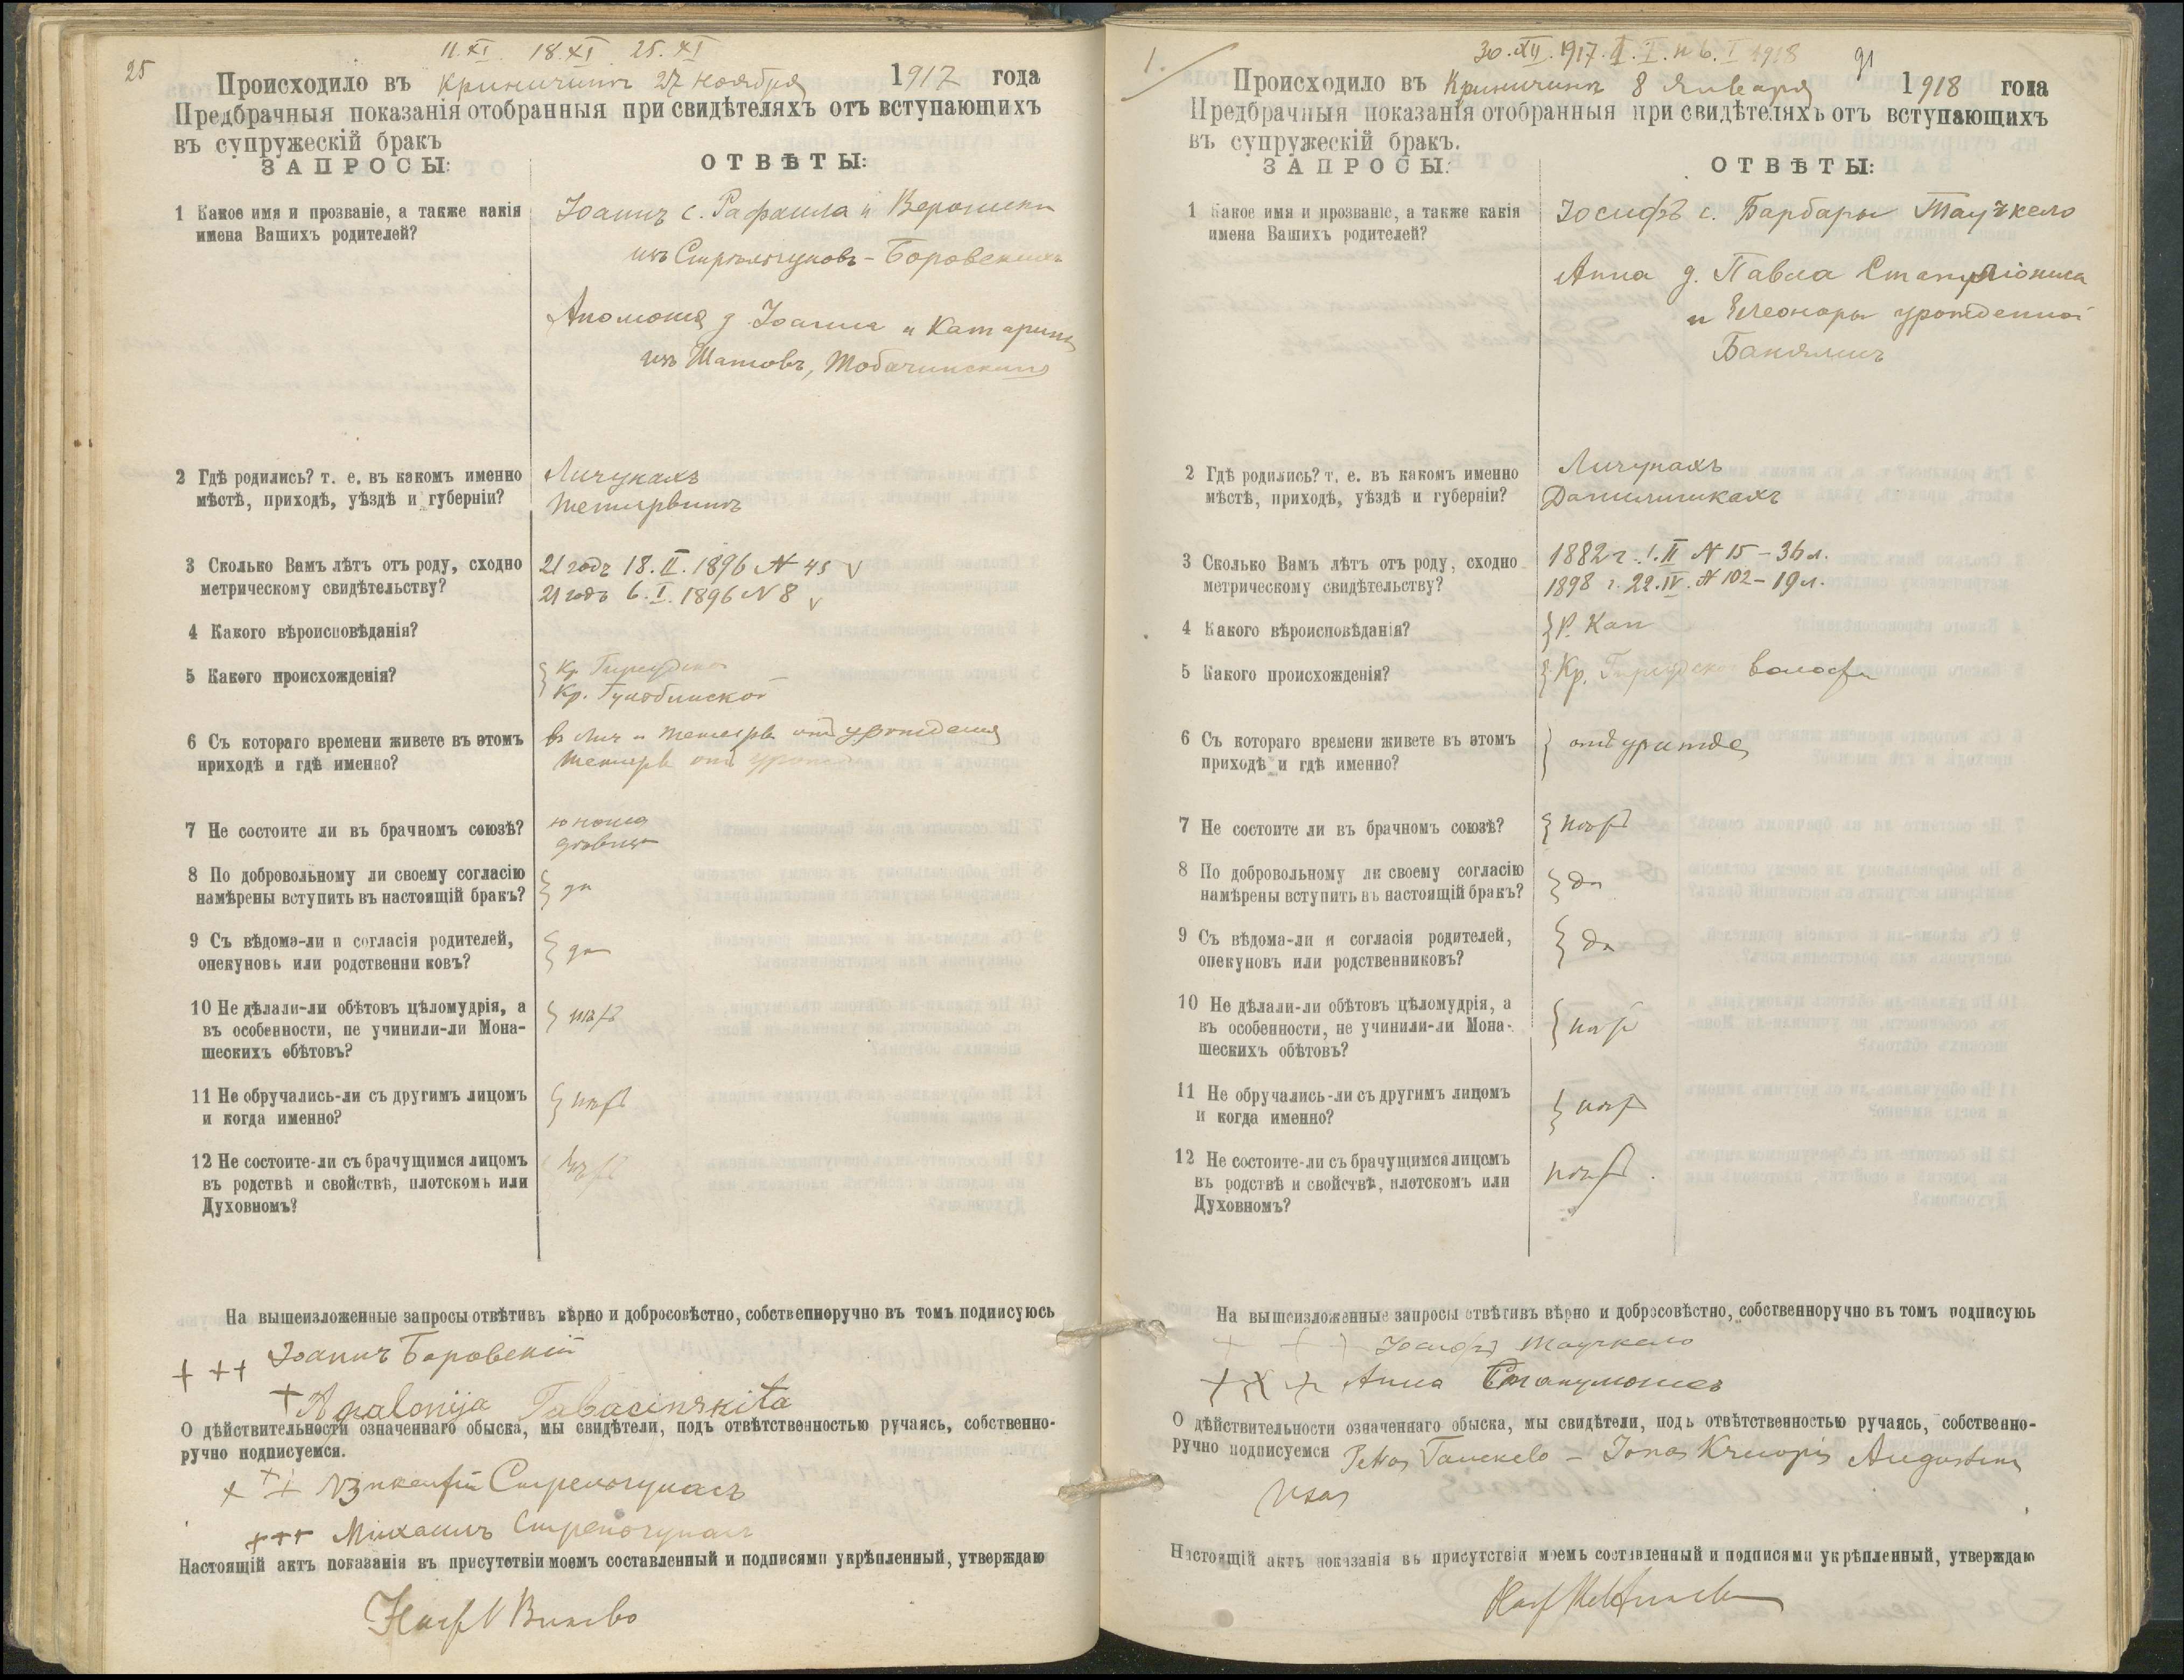 25
11. XI. 18. XI 25. XI
Происходило въ Криничинъ 27 ноября 1917 года
Предбрачныя показанія отобранныя при свидѣтеляхъ отъ вступающихъ
въ супружескій бракъ
ЗАПРОСЫ: ОТВѢТЫ:
1 Какое имя и прозваніе, а также какія
имена Вашихъ родителей?
Іоаннъ с. Рафаила и Вероники
изъ Боровскихъ
Аполонія д. Іоанна и Катарины
изъ Шатовъ,
2 Гдѣ родились? т. е. въ какомъ именно
мѣстѣ, приходѣ, уѣздѣ и губерніи?
Личунахъ
3 Сколько Вамъ лѣтъ отъ роду, сходно
метрическому свидѣтельству?
21 годъ 18. II. 1896 N 45 v
21 годъ 6. I. 1896 N 8 v
4 Какого вѣроисповѣданія?
5 Какого происхожденія?
Кр.
Кр.
6 Съ котораго времени живете въ этомъ
приходѣ и гдѣ именно?
7 Не состоите ли въ брачномъ союзѣ?
юноша
дѣвица
8 По добровольному ли своему согласію
намѣрены вступить въ настоящій бракъ?
да
9 Съ вѣдома-ли и согласія родителей,
опекуновъ или родственниковъ?
да
10 Не дѣлали-ли обѣтовъ цѣломудрія, а
въ особенности, не учинили-ли Мона-
шескихъ обѣтовъ?
нѣтъ
11 Не обручались-ли съ другимъ лицомъ
и когда именно?
нѣтъ
12 Не состоите-ли съ брачущимся лицомъ
въ родствѣ и свойствѣ, плотскомъ или
Духовномъ?
нѣтъ
На вышеизложенные запросы отвѣтивъ вѣрно и добросовѣстно, собственноручно въ томъ подписуюсь
+ ++ Іоаннъ Боровскій
+ Apalonija Tabacinskita
О дѣйствительности означеннаго обыска, мы свидѣтели, подъ отвѣтственностью ручаясь, собственно-
ручно подписуемся.
+++ Михаилъ
Настоящій актъ показанія въ присутствіи моемъ составленный и подписями укрѣпленный, утверждаю
1.
30. XII. 1917. 1. I. и 6. I 1918 91
Происходило въ Криничинъ 8 Января 1918 года
Предбрачныя показанія отобранныя при свидѣтеляхъ отъ вступающихъ
въ супружескій бракъ.
ЗАПРОСЫ: ОТВѢТЫ:
1 Какое имя и прозваніе, а также какія
имена Вашихъ родителей?
Іосифъ с. Барбары Таучкело
Анна д. Павла
и Элеоноры урожденной
2 Гдѣ родились? т. е. въ какомъ именно
мѣстѣ, приходѣ, уѣздѣ и губерніи?
Личунахъ
3 Сколько Вамъ лѣтъ отъ роду, сходно
метрическому свидѣтельству?
1882 г. 1. II N 15 – 36 л.
1898 г. 22. IV. N 102 – 19 л.
4 Какого вѣроисповѣданія?
Р. Кат
5 Какого происхожденія?
Кр.
6 Съ котораго времени живете въ этомъ
приходѣ и гдѣ именно?
7 Не состоите ли въ брачномъ союзѣ?
нѣтъ
8 По добровольному ли своему согласію
намѣрены вступить въ настоящій бракъ?
да
9 Съ вѣдома-ли и согласія родителей,
опекуновъ или родственниковъ?
да
10 Не дѣлали-ли обѣтовъ цѣломудрія, а
въ особенности, не учинили-ли Мона-
шескихъ обѣтовъ?
нѣтъ
11 Не обручались-ли съ другимъ лицомъ
и когда именно?
нѣтъ
12 Не состоите-ли съ брачущимся лицомъ
въ родствѣ и свойствѣ, плотскомъ или
Духовномъ?
нѣтъ.
На вышеизложенные запросы отвѣтивъ вѣрно и добросовѣстно, собственноручно въ томъ подписуюь
+ + + Іосифъ Таучкело
+ + + Анна
О дѣйствительности означеннаго обыска, мы свидѣтели, подъ отвѣтственностью ручаясь, собственно-
ручно подписуемся Petras – Jonas
Настоящій актъ показанія въ присутствіи моемъ составленный и подписями укрѣпленный, утверждаю